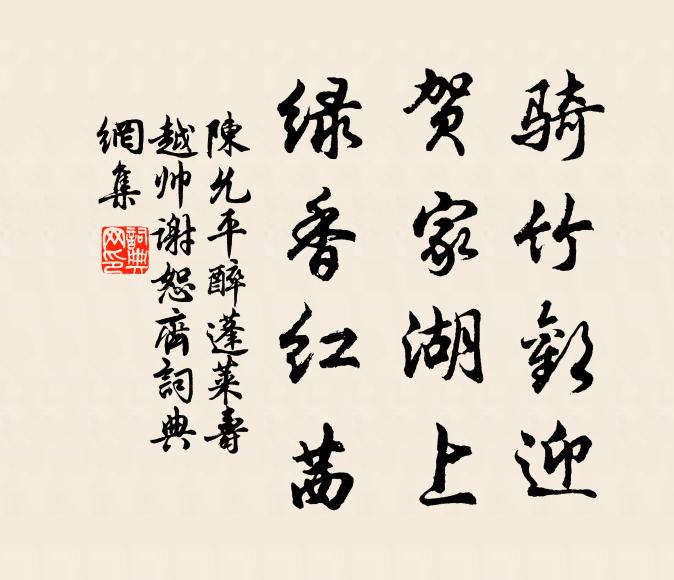 骑竹歡迎
贺家湖上
绿香红茜
陳允平醉蓬萊壽
越帅谢恕齋詞典
網集
詞典
网印